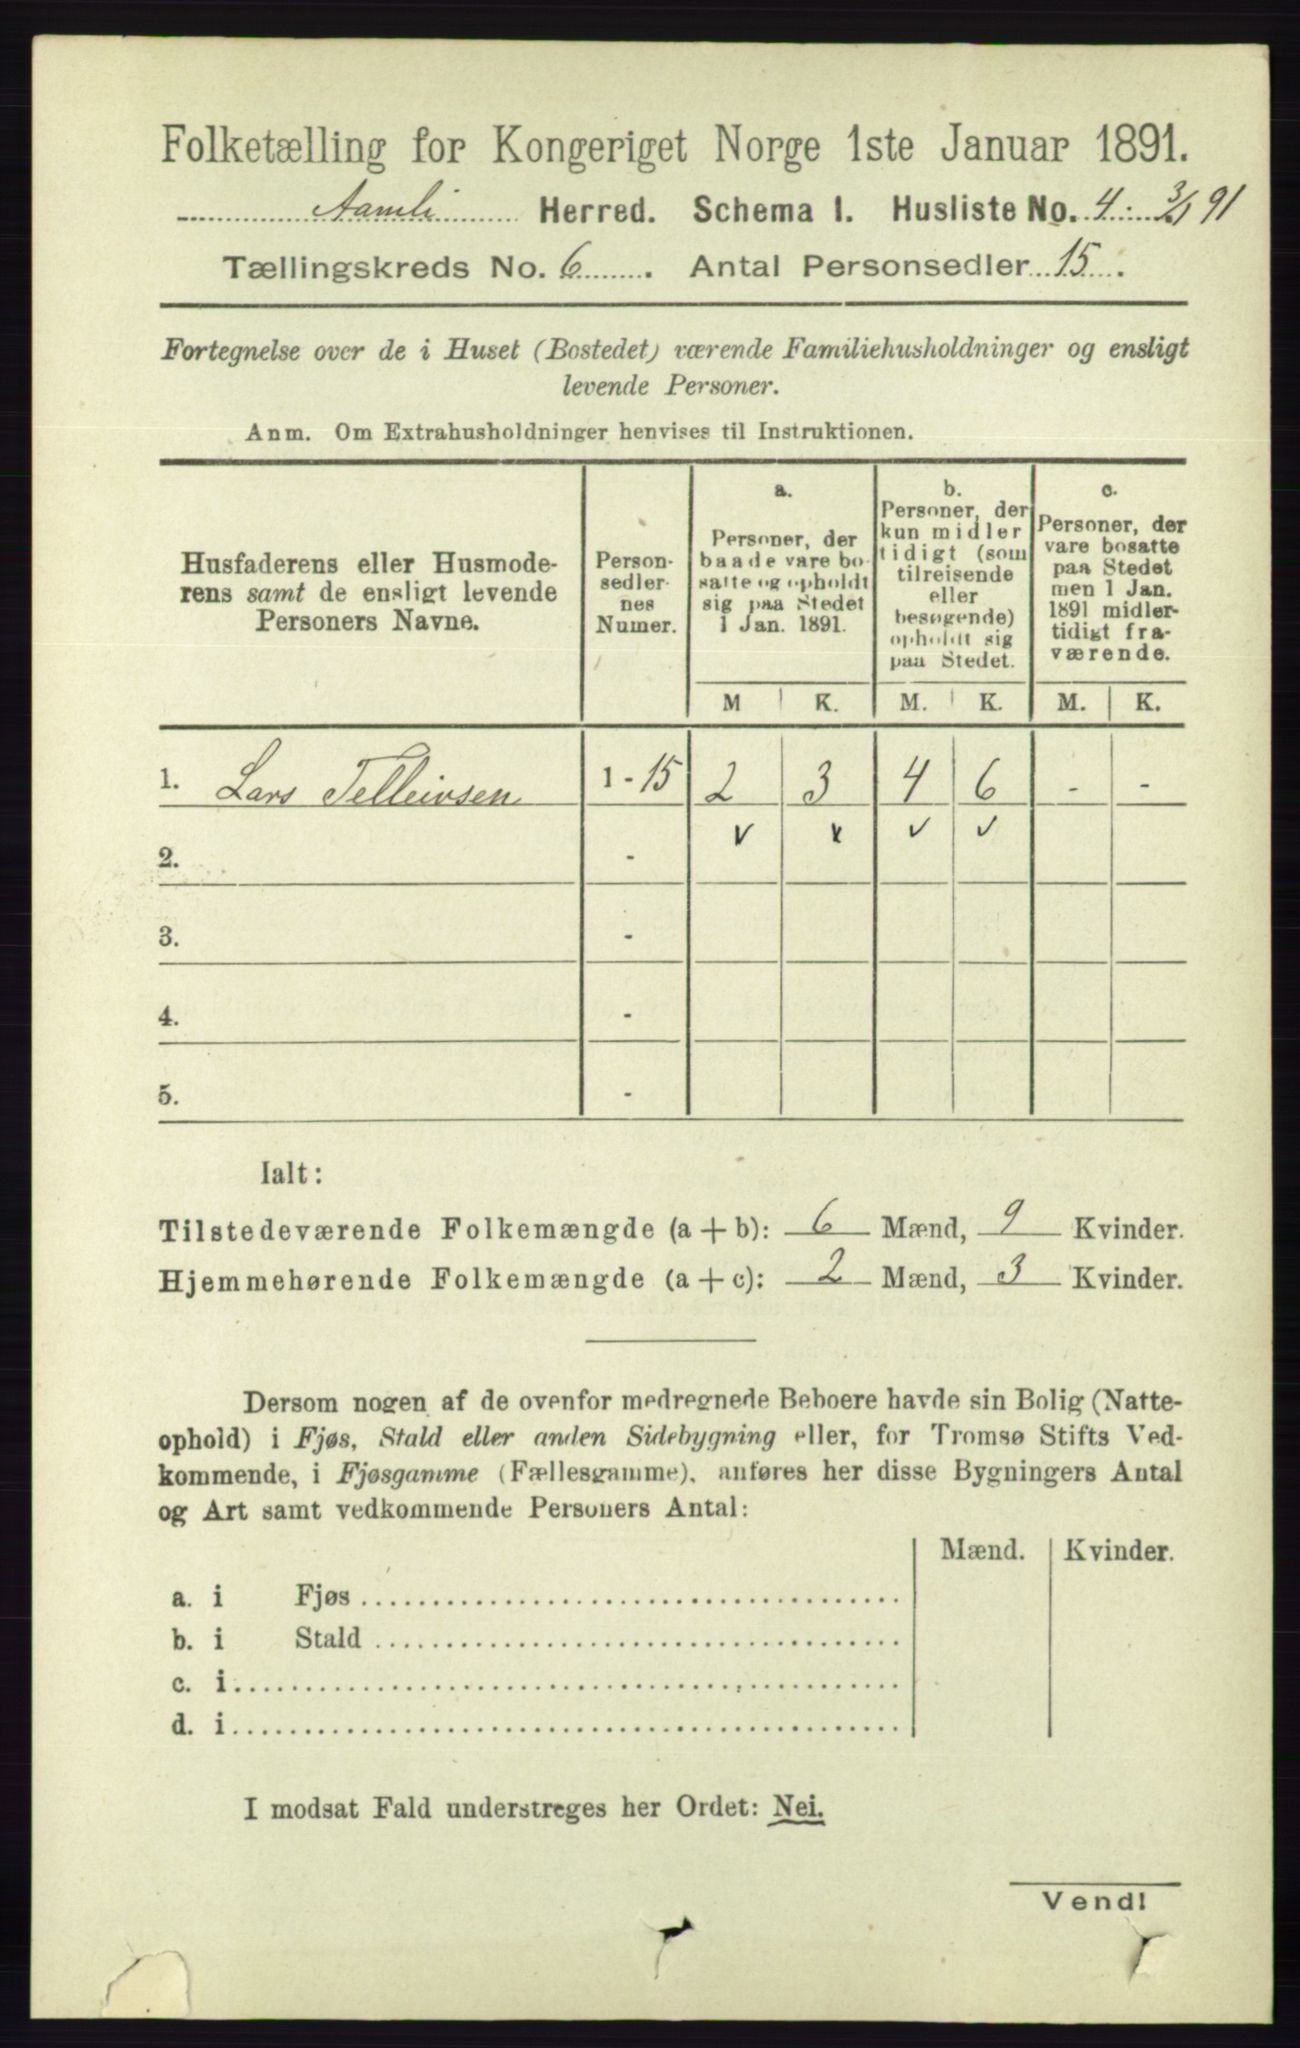 Folketælling for Kongeriget Norge 1ste Januar 1891.
Aamli Herred. Schema I. Husliste No. 4. 3/1 91
Tællingskreds No. 6. Antal Personsedler 15.
Fortegnelse over de i Huset (Bostedet) værende Familiehusholdninger og ensligt
levende Personer.
Anm. Om Extrahusholdninger henvises til Instruktionen.
Husfaderens eller Husmode-
rens samt de ensligt levende
Personers Navne.
Person-
sedler-
nes
Numer.
a.
Personer, der
baade vare bo
satte og opholdt
sig paa Stedet
1 Jan. 1891.
b.
Personer, der
kun midler
tidigt (som
tilreisende
eller
besøgende)
opholdt sig
paa Stedet.
c.
Personer, der
vare bosatte
paa Stedet
men 1 Jan.
1891 midler-
tidigt fra-
værende.
M K. M. K. M. K.
1. Lars Telleivsen 1 - 15 2 3 4 6 - -
2. -
3. -
4. -
5. -
Ialt:
Tilstedeværende Folkemængde (a + b): 6 Mænd, 9 Kvinder.
Hjemmehørende Folkemængde (a + c): 2 Mænd, 3 Kvinder.
Dersom nogen af de ovenfor medregnede Beboere havde sin Bolig (Natte-
ophold) i Fjøs, Stald eller anden Sidebygning eller, for Tromsø Stifts Ved-
kommende, i Fjøsgamme (Fællesgamme), anføres her disse Bygningers Antal
og Art samt vedkommende Personers Antal:
Mænd. Kvinder.
a. i Fjøs
b. i Stald
c. i
d. i
I modsat Fald understreges her Ordet: Nei.
Vend!